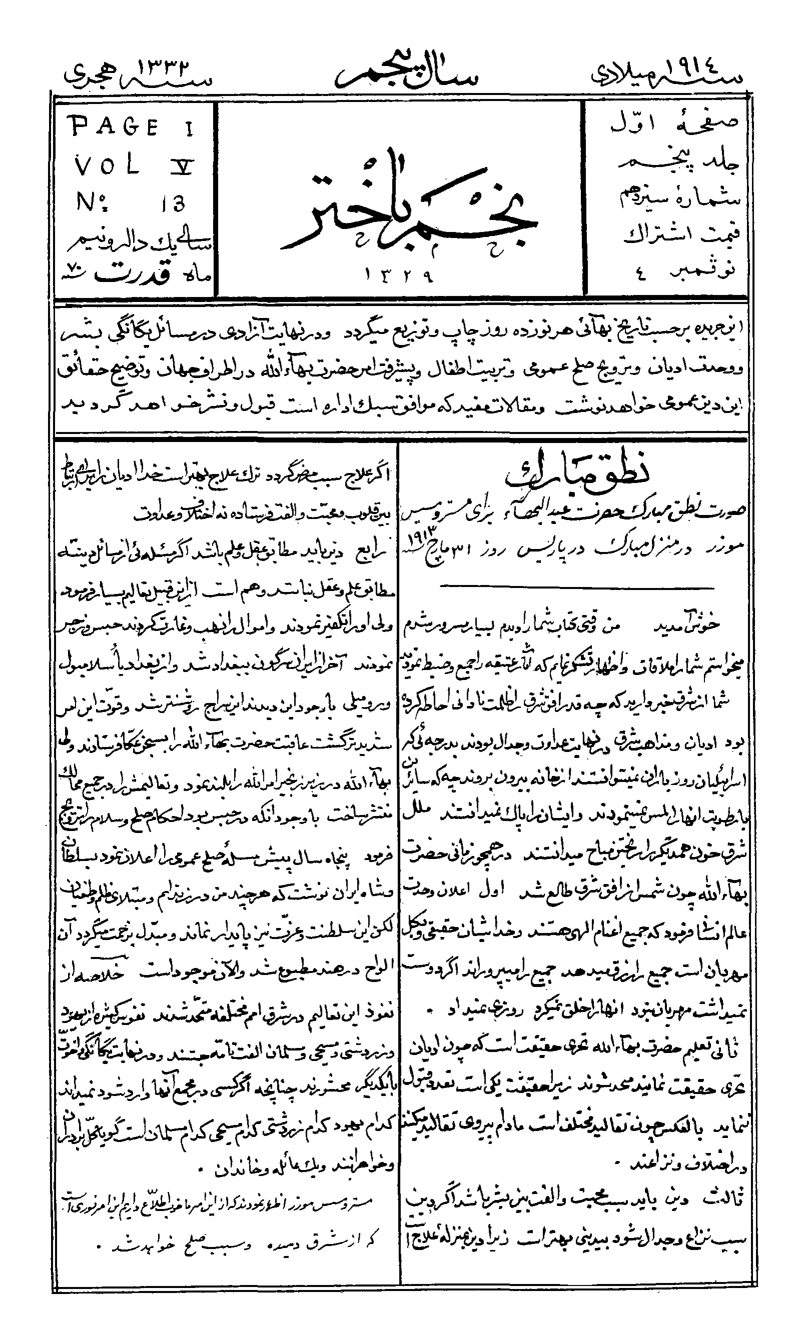 سنه ١٩١٤ میلادی
سال پنجم
سنه ١٣٣٢ هجری
صفحهٔ اوّل
جلد پنجم
شمارهٔ سیزدهم
قیمت اشتراک
نوڤمبر ٤
نجم باختر
١٣٢٩
PAGE I
VOL V
Nº 13
سالی یك دالر ونیم
ماه قدرت سنه ٧٠
این جریده برحسب تاریخ بهائی هر نوزده روز چاپ وتوزیع میگردد ودر نهایت آزادی در مسائل یگانگی بشر
ووحدت ادیان وترویج صلح عمومی وتربیت اطفال وپیشرفت امر حضرت بهآءالله در اطراف جهان وتوضیح حقائق
این دین عمومی خواهد نوشت ومقالات مفیده که موافق سبك اداره است قبول ونشر خواهد گردید
نطق مبارك
صورت نطق مبارك حضرت عبدالبهآء برای مستر ومسس
موزر در منزل مبارك در پاریس روز ٣١ مارچ سنه ١٩١٣
خوش آمدید من وقتی کتاب شما را دیدم بسیار مسرور شدم
میخواستم شما را ملاقات واظهار تشکر نمایم که آثار عتیقه را جمع وضبط نمودید
شما از شرق خبر دارید که چه قدر افق شرق را ظلمت نادانی احاطه کرده
بود ادیان ومذاهب شرق در نهایت عداوت وجدال بودند بدرجه ئی که
اسرائیلیان روز باران نمیتوانستند از خانه بیرون بروند چه که سائرین
با رطوبت آنها را لمس نمینمودند وایشان را پاك نمیدانستند ملل
شرق خون همدیگر را ریختن مباح میدانستند در همچو زمانی حضرت
بهآءالله چون شمس از افق شرق طالع شد اول اعلان وحدت
عالم انسانی فرمود که جمیع اغنام الهی هستند وخدا شبان حقیقی وبکل
مهربان است جمیع را رزق میدهد جمیع را میپروراند اگر دوست
نمیداشت مهربان نبود آنها را خلق نمیکرد روزی نمیداد ٠
ثانی تعلیم حضرت بهآءالله تحری حقیقت است که چون ادیان
تحری حقیقت نمایند متحد شوند زیرا حقیقت یکی است تعدد قبول
ننماید بالعکس چون تقالید مختلف است مادام پیروی تقالید میکنند
در اختلاف ونزاعند ٠
ثالث دین باید سبب محبت والفت بین بشر باشد اگر دین
سبب نزاع وجدال شود بیدینی بهتر است زیرا دین بمنزلهٔ علاج است
اگر علاج سبب مرض گردد ترك علاج بهتر است خدا ادیان را برای ارتباط
بین قلوب ومحبت والفت فرستاده نه اختلاف وعداوت
رابع دین باید مطابق عقل وعلم باشد اگر مسئله ئی از مسائل دینیه
مطابق علم وعقل نباشد وهم است از این قبیل تعالیم بسیار فرمود
ولی او را تکفیر نمودند واموال را نهب وغارت کردند حبس وزجر
نمودند آخر از ایران سرگون ببغداد شد واز بغداد باسلامبول
ورومیلی باوجود این دیدند این سراج روشنتر شد وقوّت این امر
شدیدتر گشت عاقبت حضرت بهآءالله را بسجن عکا فرستادند ولی
بهآءالله در زیر زنجیر امرالله را بلند نمود وتعالیمش را در جمیع ممالك
منتشر ساخت باوجود آنکه در حبس بود احکام صلح وسلام را ترویج
فرمود پنجاه سال پیش مسئلهٔ صلح عمومی را اعلان نمود بسلطان
وشاه ایران نوشت که هرچند من در زندانم ومبتلای ظلم وطغیان
لکن این سلطنت وعزّت نیز پایدار نماند ومبدل بزحمت میگردد آن
الواح در هند مطبوع شد والآن موجود است خلاصه از
نفوذ این تعالیم در شرق امم مختلفه متحد شدند نفوس کثیره از یهود
وزردشتی ومسیحی ومسلمان الفت تامه جستند ودر نهایت یگانگی واخوّت
با یکدیگر محشورند چنانچه اگر کسی در مجمع آنها وارد شود نمیداند
کدام یهود کدام زردشتی کدام مسیحی کدام مسلمان است گویا کلّ برادران
وخواهرانند ویك عائله وخاندان ٠
مستر ومسس موزر اظهار نمودند که از این امر ما خوب اطلاع داریم این امر نوری است
که از شرق دمیده وسبب صلح خواهد شد ٠